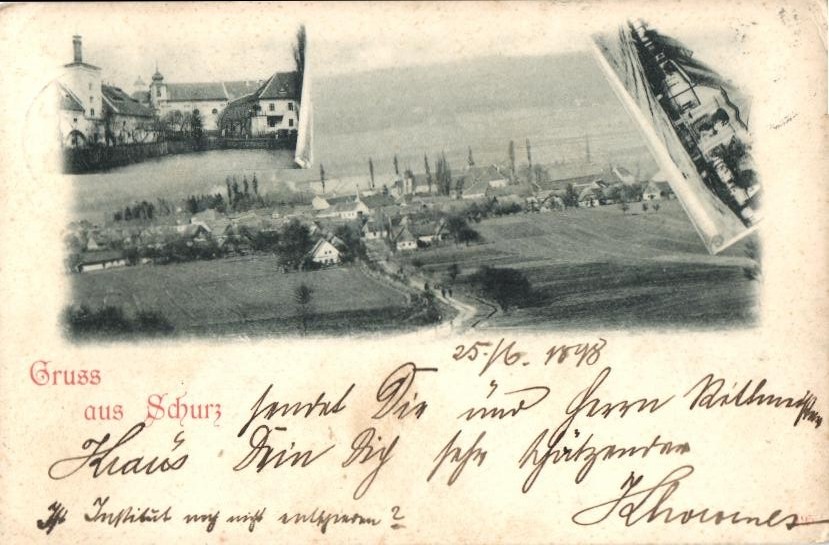 25./6. 1898
Gruss
aus Schurz
sendet Dir und Herrn Rittmeister
Kraus Dein Dich sehr schätzender
Ist Institut noch nicht